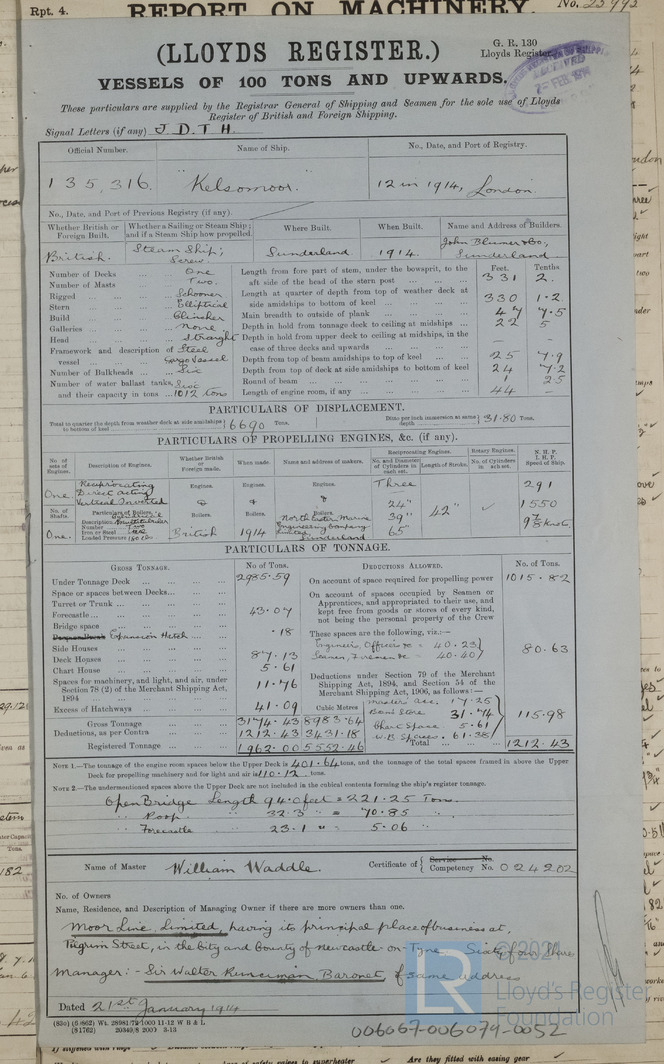 Rpt. 4.
REPORT ON MACHINERY.
No. 25992
(LLOYDS REGISTER.)
G. R. 130
Lloyds Register
VESSELS OF 100 TONS AND UPWARDS.
These particulars are supplied by the Registrar General of Shipping and Seamen for the sole use of Lloyds
Register of British and Foreign Shipping.
Signal Letters (if any) J. D. T. H.
Official Number. Name of Ship. No., Date, and Port of Registry.
135,316. "Kelsomoor." 12 in 1914, London.
No., Date, and Port of Previous Registry (if any).
Whether British or Foreign Built. Whether a Sailing or Steam Ship; and if a Steam Ship how propelled. Where Built. When Built. Name and Address of Builders.
British. Steam Ship; Screw. Sunderland 1914. John Blumer & Co., Sunderland
Number of Decks ... One
Number of Masts ... Two.
Rigged ... Schooner
Stern ... Elliptical
Build ... Clincher
Galleries ... none
Head ... Straight
Framework and description of vessel ... Steel Cargo Vessel
Number of Bulkheads ... Six
Number of water ballast tanks, and their capacity in tons ... 1012 tons
Feet. Tenths
Length from fore part of stem, under the bowsprit, to the aft side of the head of the stern post ... 331 2.
Length at quarter of depth from top of weather deck at side amidships to bottom of keel ... 330 1·2
Main breadth to outside of plank ... 47 7·5
Depth in hold from tonnage deck to ceiling at midships ... 22 5
Depth in hold from upper deck to ceiling at midships, in the case of three decks and upwards ... — —
Depth from top of beam amidships to top of keel ... 25 7·9
Depth from top of deck at side amidships to bottom of keel 24 7·2
Round of beam ... 1 25
Length of engine room, if any ... 44 —
PARTICULARS OF DISPLACEMENT.
Total to quarter the depth from weather deck at side amidships to bottom of keel 6690 Tons. Ditto per inch immersion at same depth 31·80 Tons.
PARTICULARS OF PROPELLING ENGINES, &c. (if any).
No. of sets of Engines. Description of Engines. Whether British or Foreign made. When made. Name and address of makers. Reciprocating Engines. Rotary Engines. N. H. P. I. H. P. Speed of Ship.
No. and Diameter of Cylinders in each set. Length of Stroke. No. of Cylinders in each set.
One Reciprocating Direct Acting Vertical Inverted
Engines. Engines. Engines. Three 291
No. of Shafts. Particulars of Boilers.
Description
Number Two
Iron or Steel
Loaded Pressure
Boilers. Boilers. Boilers.
24" 39" 65" 42" 1550
9⅜ Knots
One. British 1914 North Eastern Marine Engineering Company Limited, Sunderland
PARTICULARS OF TONNAGE.
GROSS TONNAGE. No. of Tons.
Under Tonnage Deck ... 2985·59
Space or spaces between Decks...
Turret or Trunk ...
Forecastle ... 43·07
Bridge space
Expansion Hatch ... ·18
Side Houses
Deck Houses ... 87·13
Chart House ... 5·61
Spaces for machinery, and light, and air, under Section 78 (2) of the Merchant Shipping Act, 1894 ... 11·76
Excess of Hatchways ... 41·09
Cubic Metres
Gross Tonnage 3174·43 8983·64
Deductions, as per Contra 1212·43 3431·18
Registered Tonnage 1962·00 5552·46
DEDUCTIONS ALLOWED. No. of Tons.
On account of space required for propelling power 1015·82
On account of spaces occupied by Seamen or Apprentices, and appropriated to their use, and kept free from goods or stores of every kind, not being the personal property of the Crew
These spaces are the following, viz.:—
Engineers, Officers &c = 40.23
Seamen, Firemen &c = 40.40
80.63
Deductions under Section 79 of the Merchant Shipping Act, 1894, and Section 54 of the Merchant Shipping Act, 1906, as follows:—
Masters acc. 17.25
Boats'n Store 31.74
Chart Space 5.61
W.B. Spaces. 61.38
115.98
Total 1212.43
NOTE 1.—The tonnage of the engine room spaces below the Upper Deck is 401.64 tons, and the tonnage of the total spaces framed in above the Upper
Deck for propelling machinery and for light and air is 110.12 tons.
NOTE 2.—The undermentioned spaces above the Upper Deck are not included in the cubical contents forming the ship's register tonnage.
Open Bridge Length 94.0 feet = 221.25 Tons.
" Poop " 22.3 " = 70.85 "
" Forecastle " 23.1 " = 5.06 "
Name of Master William Waddle. Certificate of Service No. Competency No. 024202
No. of Owners
Name, Residence, and Description of Managing Owner if there are more owners than one.
Moor Line, Limited, having its principal place of business at,
Pilgrim Street, in the City and County of Newcastle-on-Tyne Sixty four Shares
Manager:- Sir Walter Runciman Baronet of same address
Dated 21st January 1914
© 2021
Lloyd's Register
Foundation
006067-006079-0052